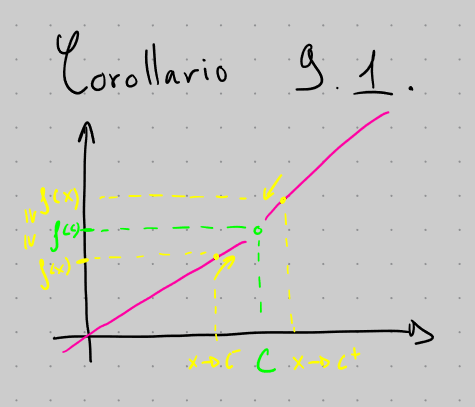 Corollario 9.1.
f(x)
≥
f(c)
≥
f(x)
x→c⁻ C x→c⁺